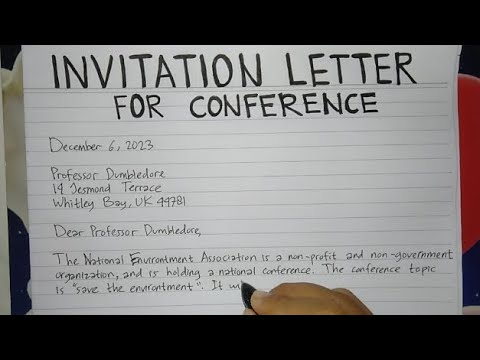 INVITATION LETTER
FOR CONFERENCE
December 6, 2023
Professor Dumbledore
14 Jesmond Terrace
Whitley Bay, UK 44781
Dear Professor Dumbledore,
The National Environtment Association is a non-profit and non-government
organization, and is holding a national conference. The conference topic
is "save the environtment". It